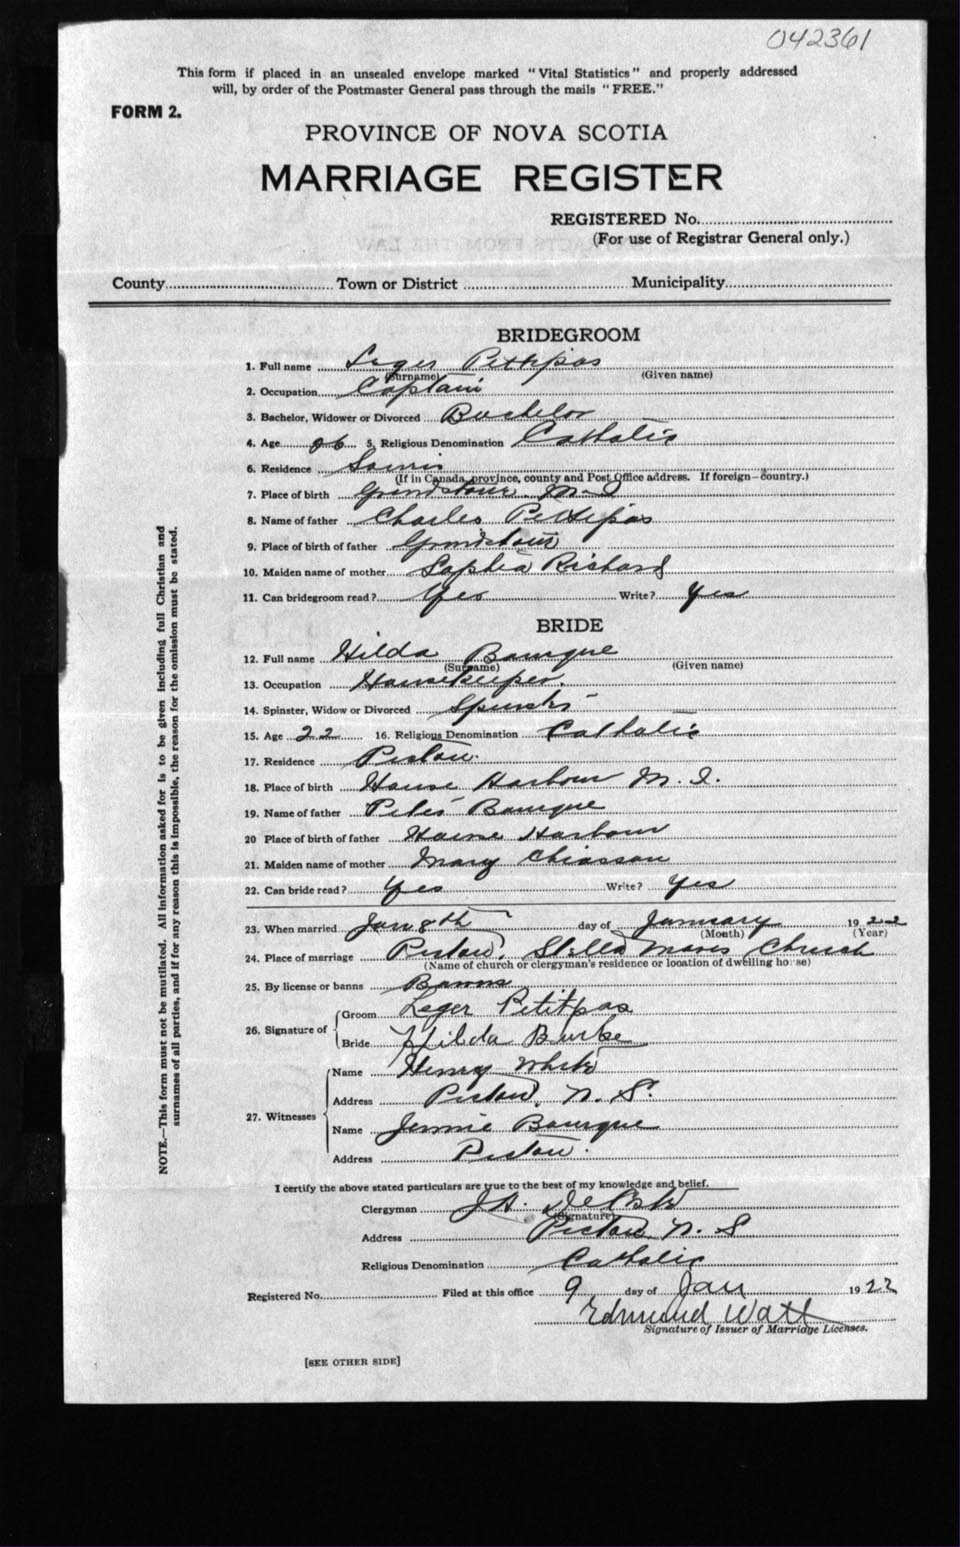 042361
This form if placed in an unsealed envelope marked "Vital Statistics" and properly addressed
will, by order of the Postmaster General pass through the mails "FREE."
FORM 2.
PROVINCE OF NOVA SCOTIA
MARRIAGE REGISTER
REGISTERED No.
(For use of Registrar General only.)
County Town or District Municipality
BRIDEGROOM
1. Full name Leger Pettipas
(Surname) (Given name)
2. Occupation Captain
3. Bachelor, Widower or Divorced Bachelor
4. Age 26 5. Religious Denomination Catholic
6. Residence Souris
(If in Canada, province, county and Post Office address. If foreign—country.)
7. Place of birth Grindstone M-I
8. Name of father Charles Pettipas
9. Place of birth of father Grindstone
10. Maiden name of mother Sophia Richard
11. Can bridegroom read? Yes Write? Yes
BRIDE
12. Full name Hilda Bourque
(Surname) (Given name)
13. Occupation Housekeeper.
14. Spinster, Widow or Divorced Spinster
15. Age 22 16. Religious Denomination Catholic
17. Residence Pictou.
18. Place of birth House Harbour M. I.
19. Name of father Peter Bourque
20 Place of birth of father House Harbour
21. Maiden name of mother Mary Chiasson
22. Can bride read? Yes Write? Yes
23. When married Jan 8th day of January 1922
(Month) (Year)
24. Place of marriage Pictou, Stella Maris Church
(Name of church or clergyman's residence or location of dwelling house)
25. By license or banns Banns
26. Signature of Groom Leger Petitpas
Bride Hilda Burke
27. Witnesses Name Henry White
Address Pictou, N. S.
Name Jennie Bourque
Address Pictou.
I certify the above stated particulars are true to the best of my knowledge and belief.
Clergyman J. A. DeCoste
(Signature)
Address Pictou N. S
Religious Denomination Catholic
Registered No. Filed at this office 9 day of Jan 1922
Edmund Watt
Signature of Issuer of Marriage Licenses.
[SEE OTHER SIDE]
NOTE.—This form must not be mutilated. All information asked for is to be given including full Christian and
surnames of all parties, and if for any reason this is impossible, the reason for the omission must be stated.